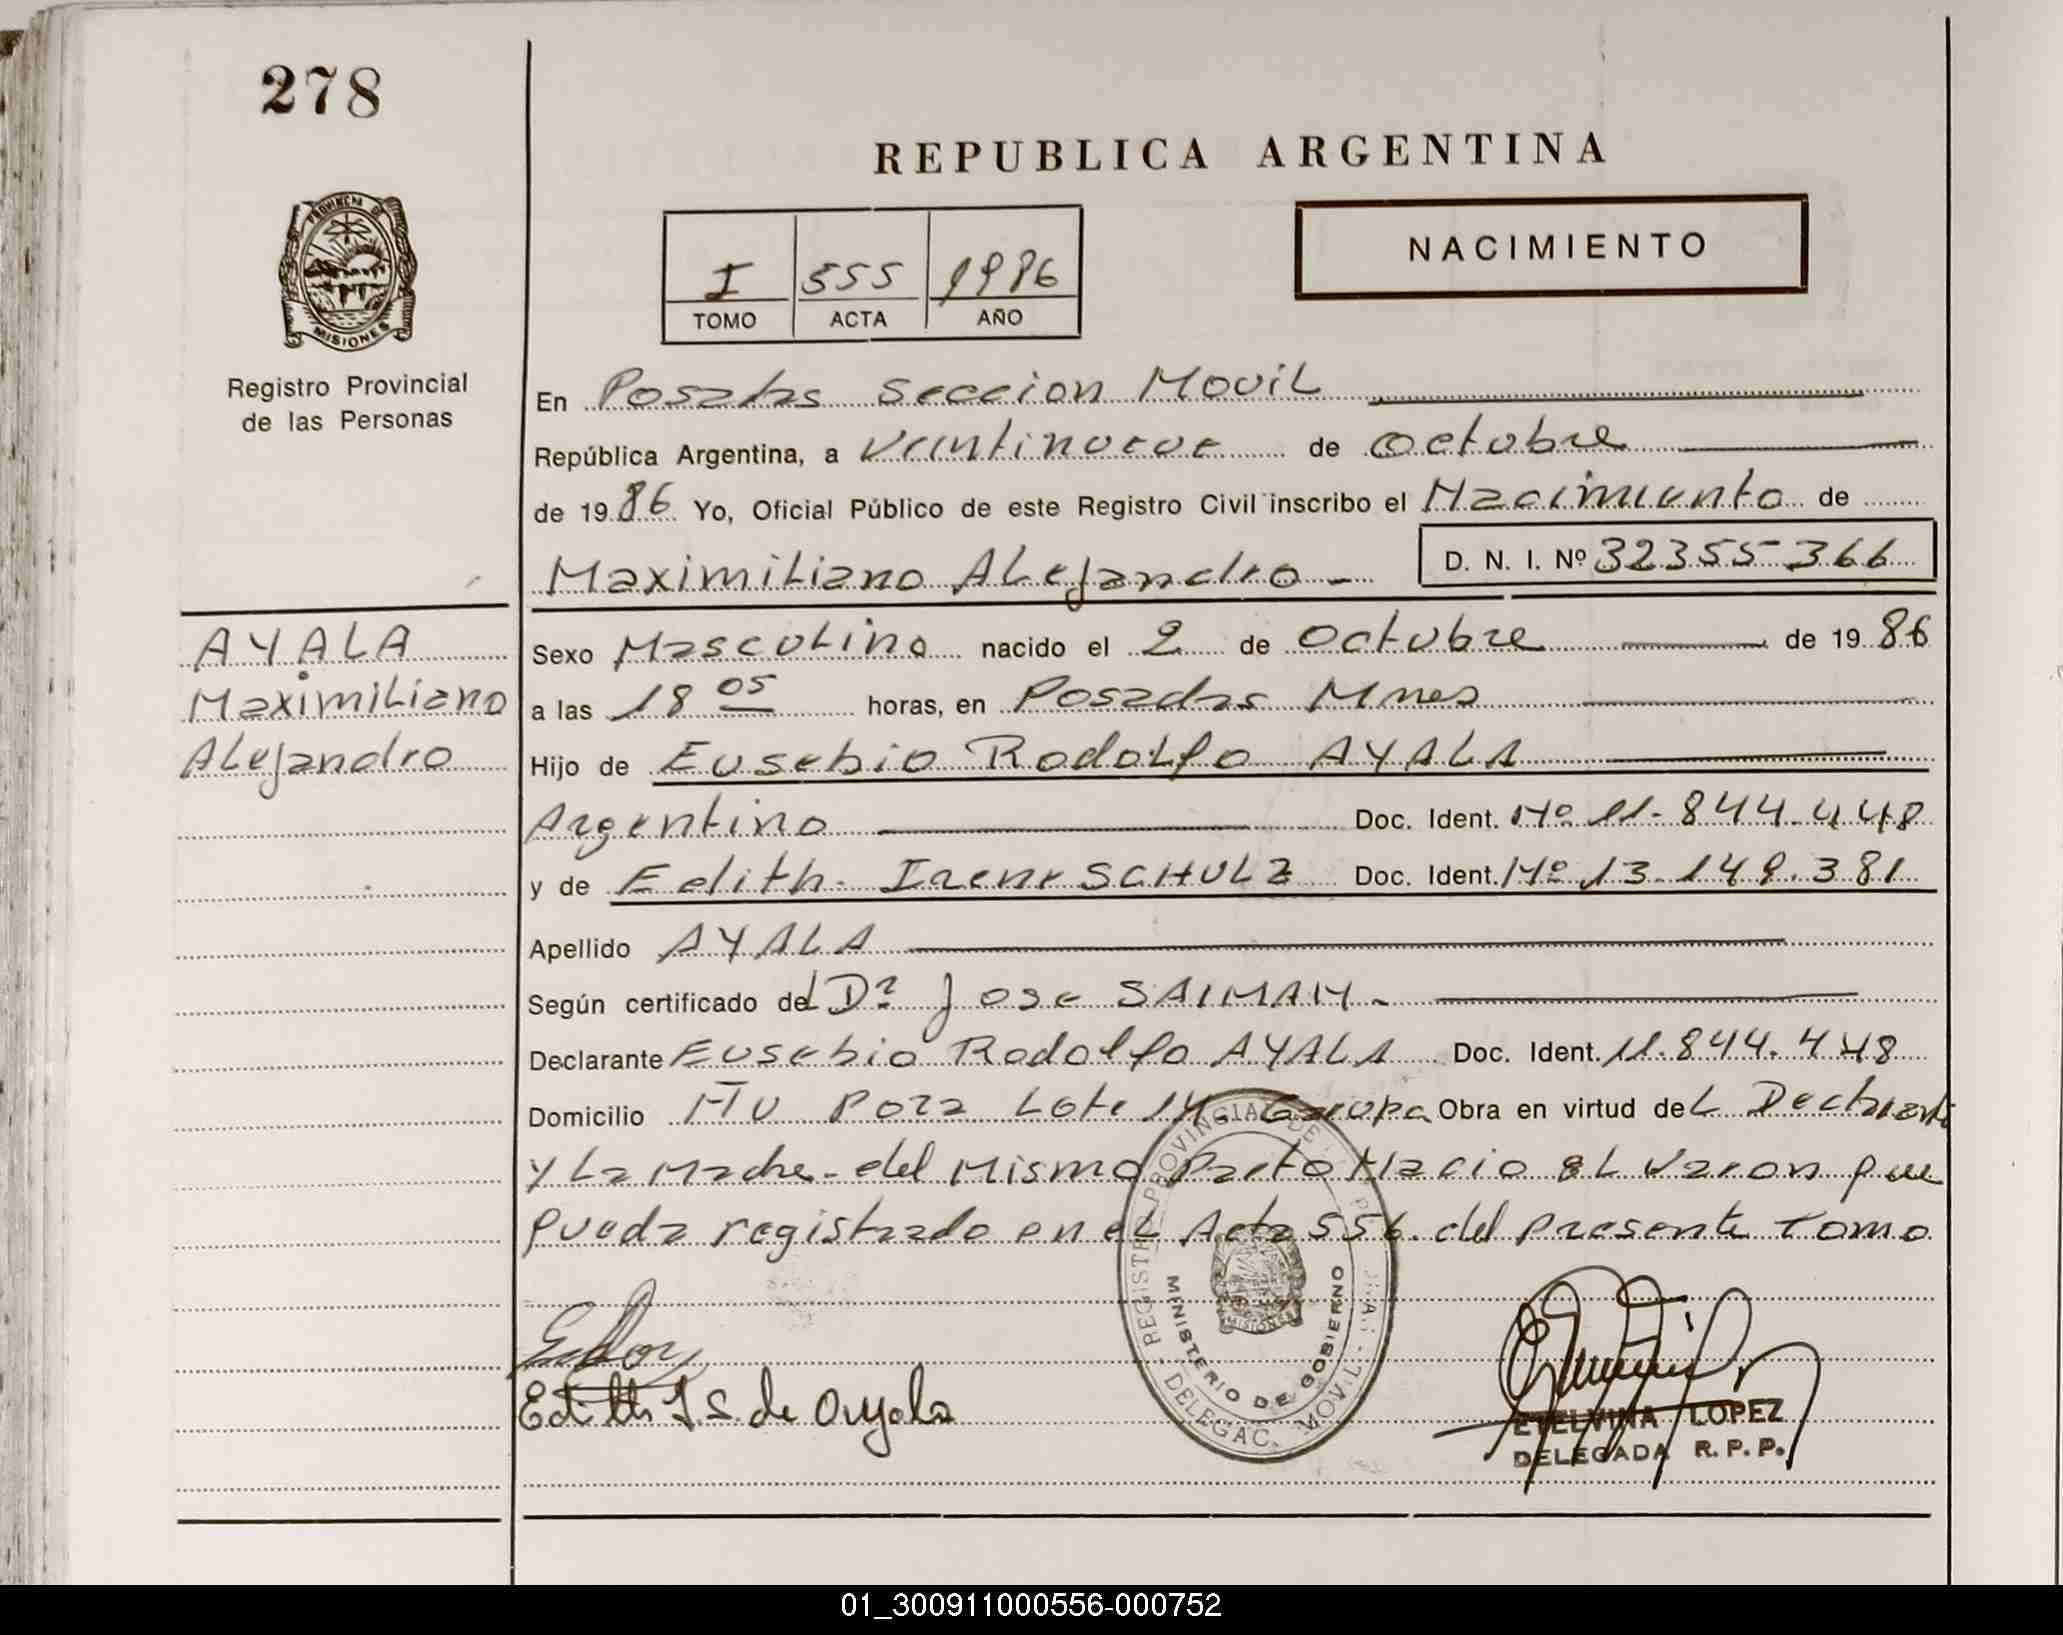 278
REPUBLICA ARGENTINA
NACIMIENTO
I 555 1986
TOMO ACTA AÑO
PROVINCIA DE MISIONES
Registro Provincial
de las Personas
En Posadas Seccion Movil
República Argentina, a Veintinueve de Octubre
de 19 86 Yo, Oficial Público de este Registro Civil inscribo el Nacimiento de
Maximiliano Alejandro - D. N. I. Nº 32355366
AYALA
Maximiliano
Alejandro
Sexo Masculino nacido el 2 de Octubre de 19 86
a las 18 05 horas, en Posadas Mnes
Hijo de Eusebio Rodolfo AYALA
Argentino Doc. Ident. Nº 11.844.448
y de Edith Irene SCHULZ Doc. Ident. Nº 13.149.381
Apellido AYALA
Según certificado del Dr Jose SAIMAN -
Declarante Eusebio Rodolfo AYALA Doc. Ident. 11.844.448
Domicilio Lote 14 Garupa Obra en virtud del Declarante
y La Madre - del Mismo Parto Nacio el Varon que
queda registrado en el Acta 556 del presente tomo
REGISTRO PROVINCIAL DE
MINISTERIO DE GOBIERNO
MISIONES
DELEGAC. MOVIL
Edith I S. de Ayala
ETELVINA LOPEZ
DELEGADA R. P. P.
01_300911000556-000752